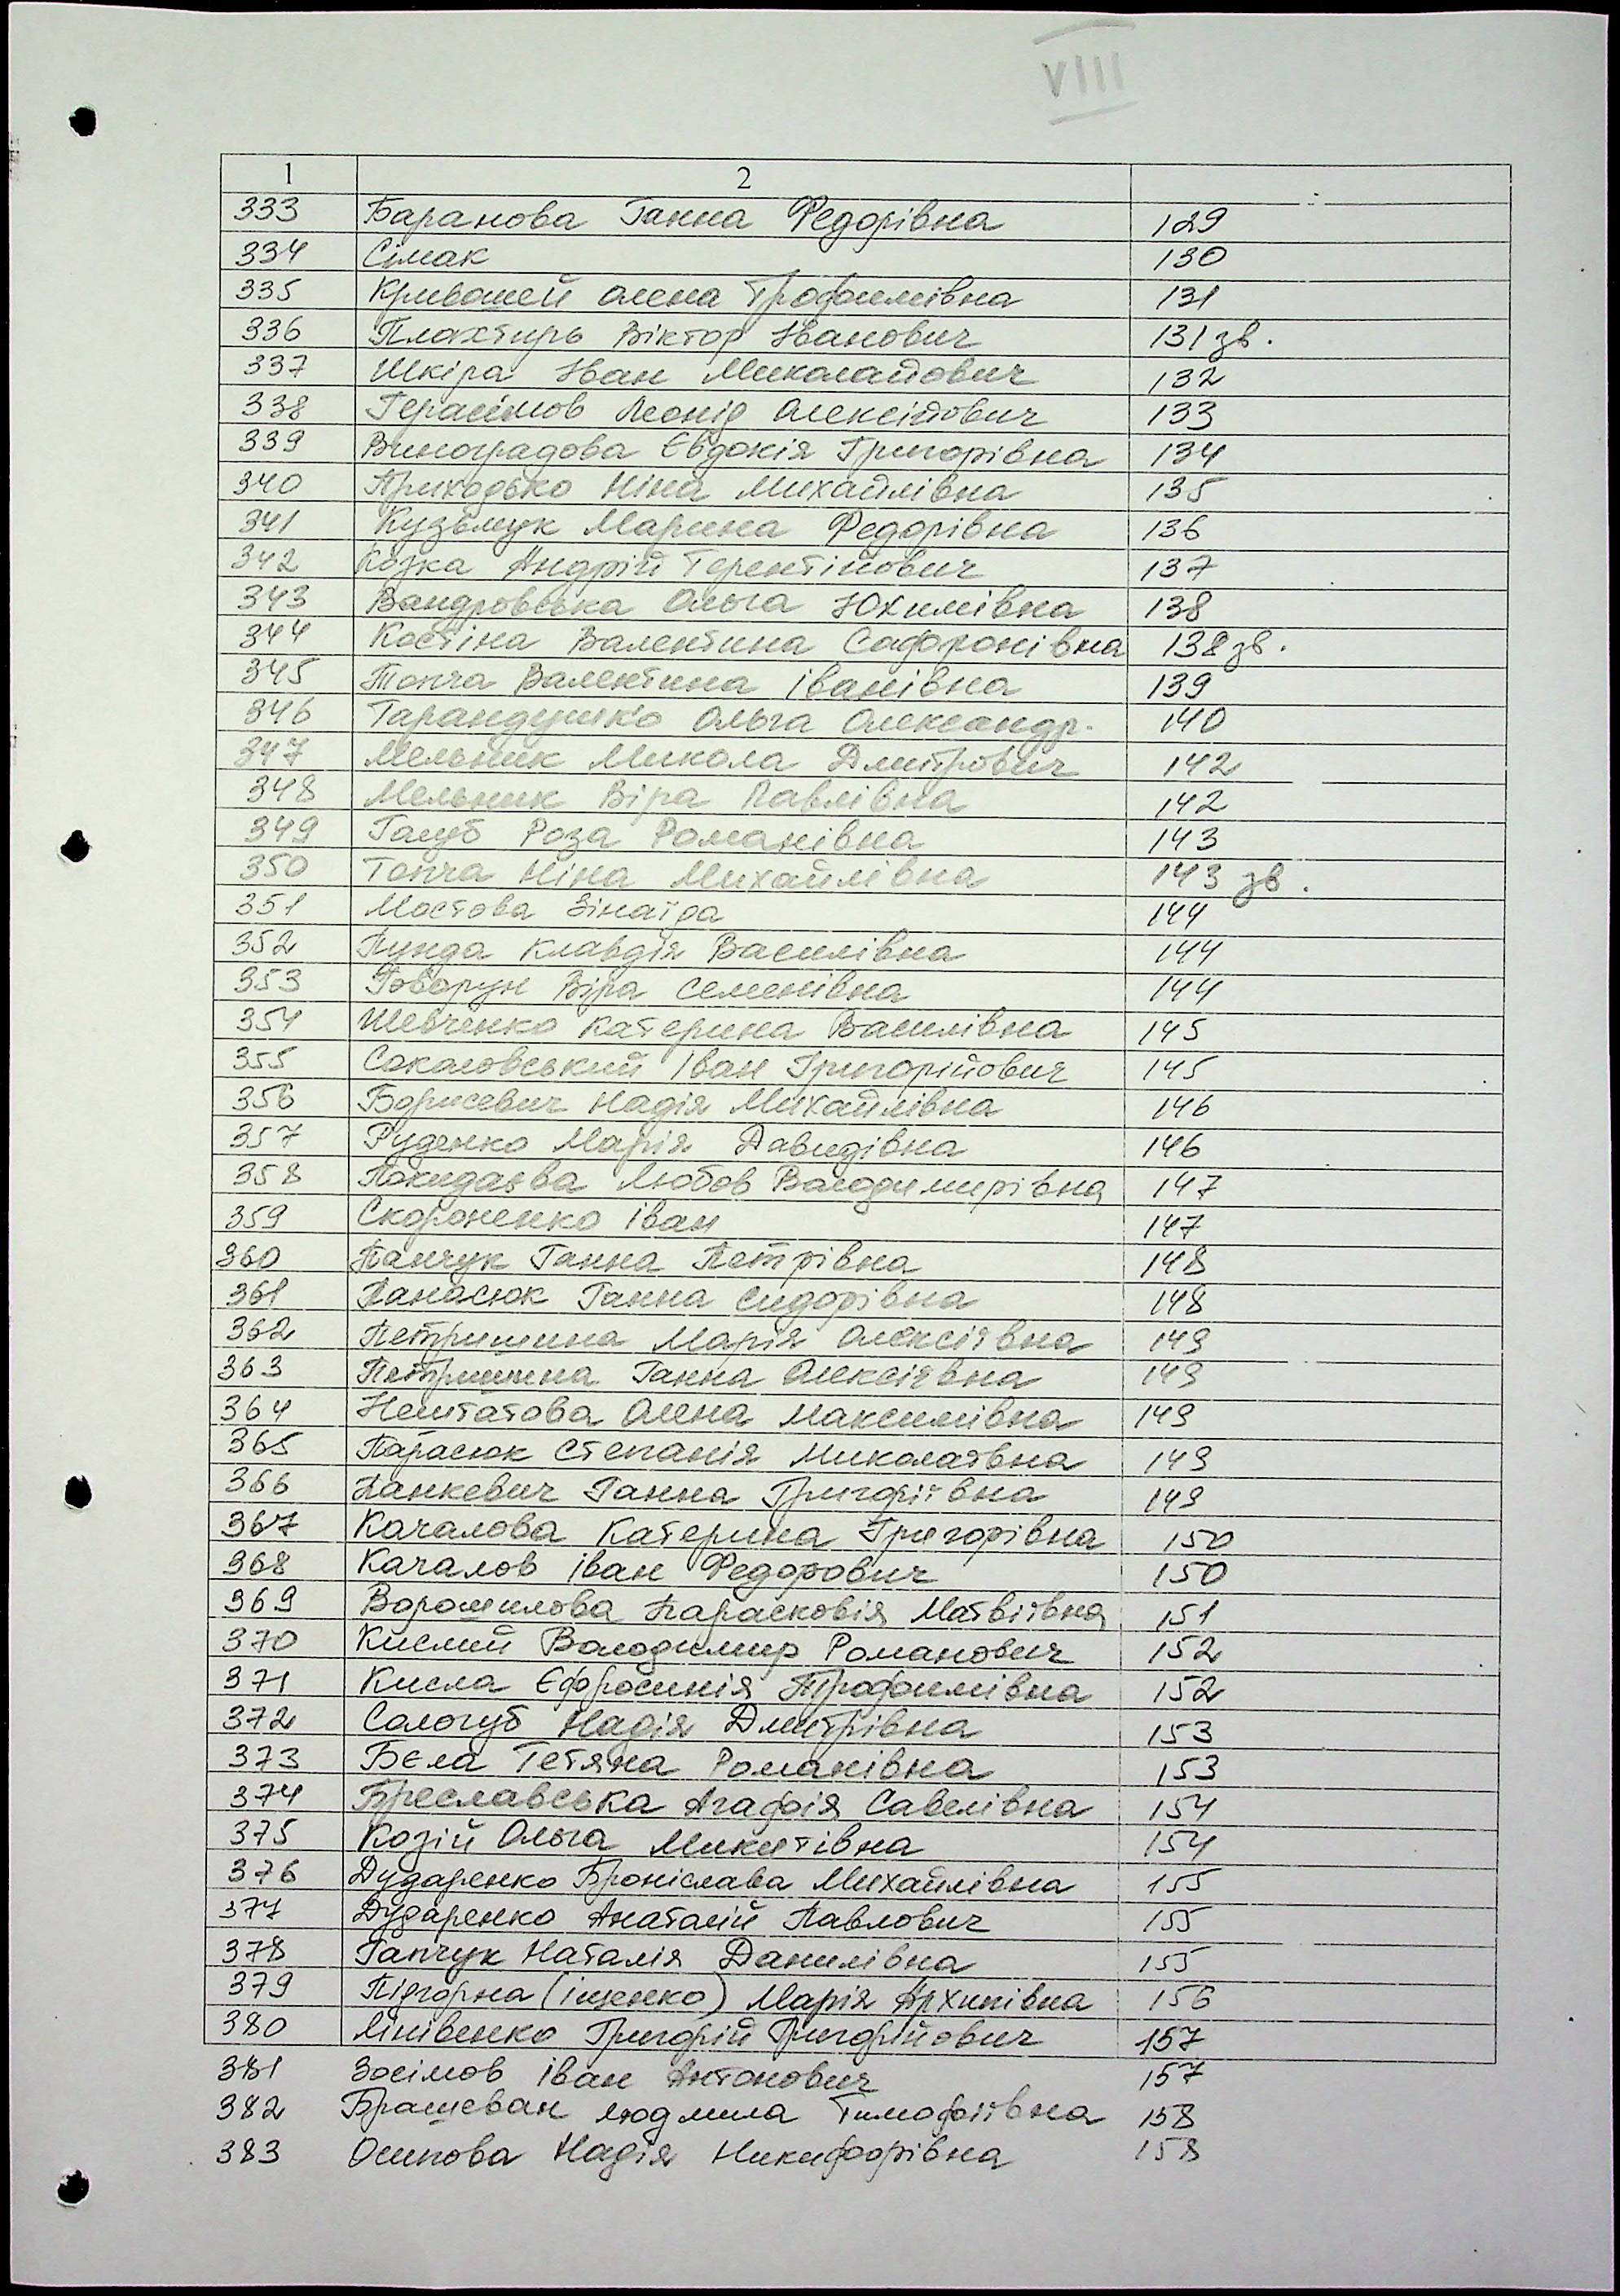 VIII
1 2
333 Баранова Ганна Федорівна 129
334 Сімак 130
335 Кривошей Олена Трофимівна 131
336 Плахтирь Віктор Іванович 131 зв.
337 Шкіра Іван Миколайович 132
338 Герасімов Леонід Олексійович 133
339 Виноградова Євдокія Григорівна 134
340 Приходько Ніна Михайлівна 135
341 Кузьмук Марина Федорівна 136
342 Козка Андрій Терентійович 137
343 Вандровська Ольга Юхимівна 138
344 Костіна Валентина Софронівна 138 зв.
345 Топча Валентина Іванівна 139
346 Тарандушко Ольга Олександр. 140
347 Мельник Микола Дмитрович 142
348 Мельник Віра Павлівна 142
349 Голуб Роза Романівна 143
350 Топча Ніна Михайлівна 143 зв.
351 Мостова Зінаїда 144
352 Пунда Клавдія Василівна 144
353 Говорун Віра Семенівна 144
354 Шевченко Катерина Василівна 145
355 Сокаловський Іван Григорійович 145
356 Борисевич Надія Михайлівна 146
357 Руденко Марія Давидівна 146
358 Покидаєва Любов Володимирівна 147
359 Скороненко Іван 147
360 Панчук Ганна Петрівна 148
361 Панасюк Ганна Сидорівна 148
362 Петришина Марія Олексіївна 149
363 Петришина Ганна Олексіївна 149
364 Нештатова Олена Максимівна 149
365 Парасюк Степанія Миколаївна 149
366 Панкевич Ганна Григоріївна 149
367 Качалова Катерина Григорівна 150
368 Качалов Іван Федорович 150
369 Ворошилова Парасковія Матвіївна 151
370 Кислий Володимир Романович 152
371 Кисла Єфросинія Трофимівна 152
372 Сологуб Надія Дмитрівна 153
373 Бєла Тетяна Романівна 153
374 Бреславська Агафія Савелівна 154
375 Козій Ольга Микитівна 154
376 Дударенко Броніслава Михайлівна 155
377 Дударенко Анатолій Павлович 155
378 Гапчук Наталія Данилівна 155
379 Підгорна (Іщенко) Марія Архипівна 156
380 Лінівенко Григорій Григорійович 157
381 Зосімов Іван Антонович 157
382 Брашеван Людмила Тимофіївна 158
383 Осипова Надія Никифорівна 158